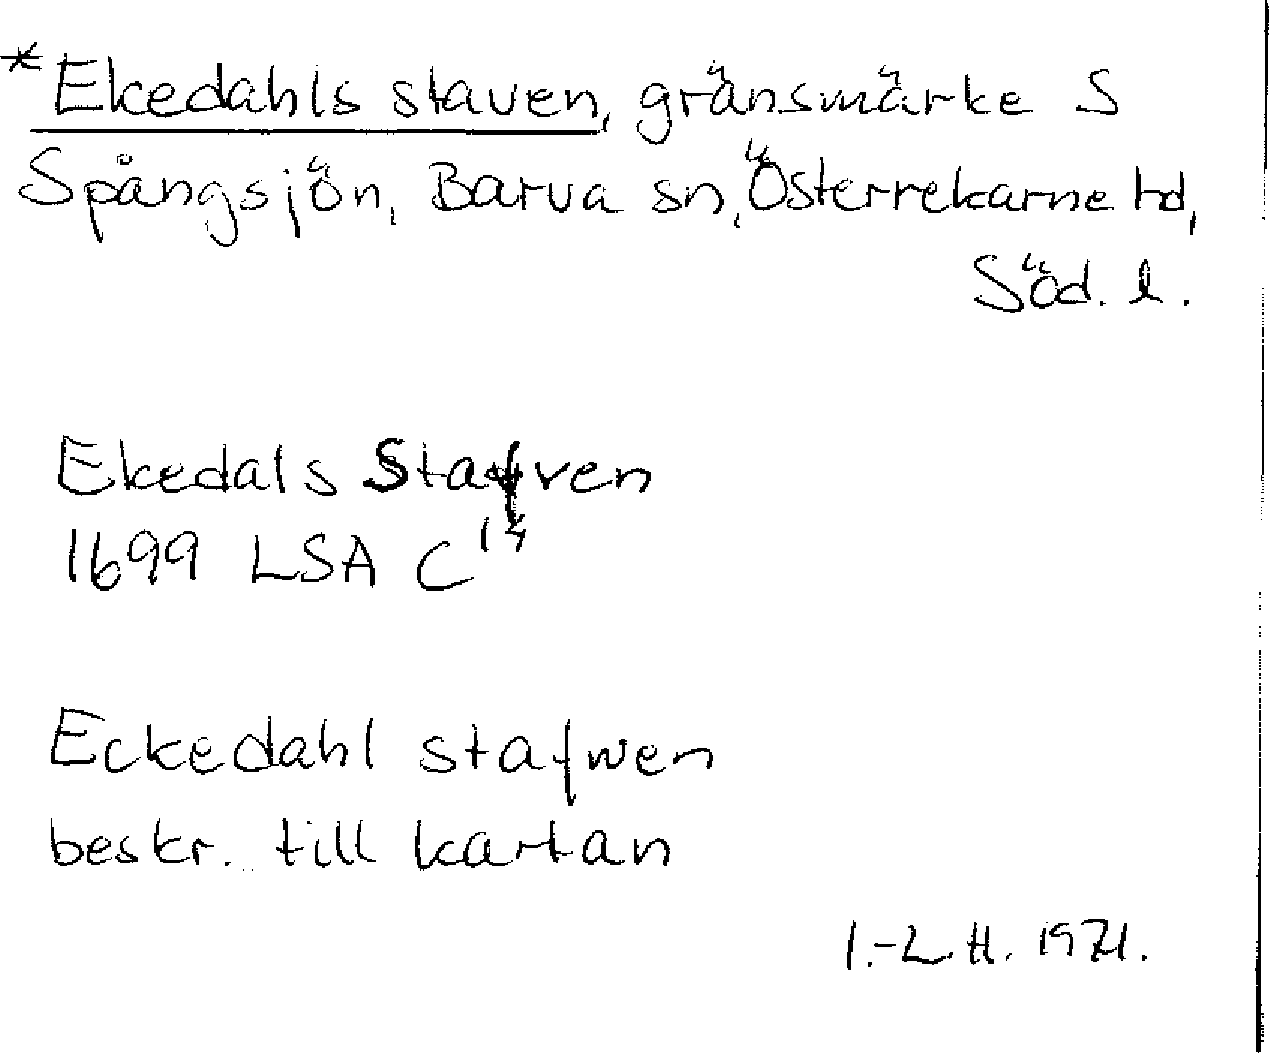 *Ekedahls staven, gränsmärke S
Spångsjön, Barva sn, Österrekarne hd,
Söd. l.
Ekedals Stafven
1699 LSA C 14
Eckedahl stafwen
beskr. till kartan
I.-L.H. 1971.